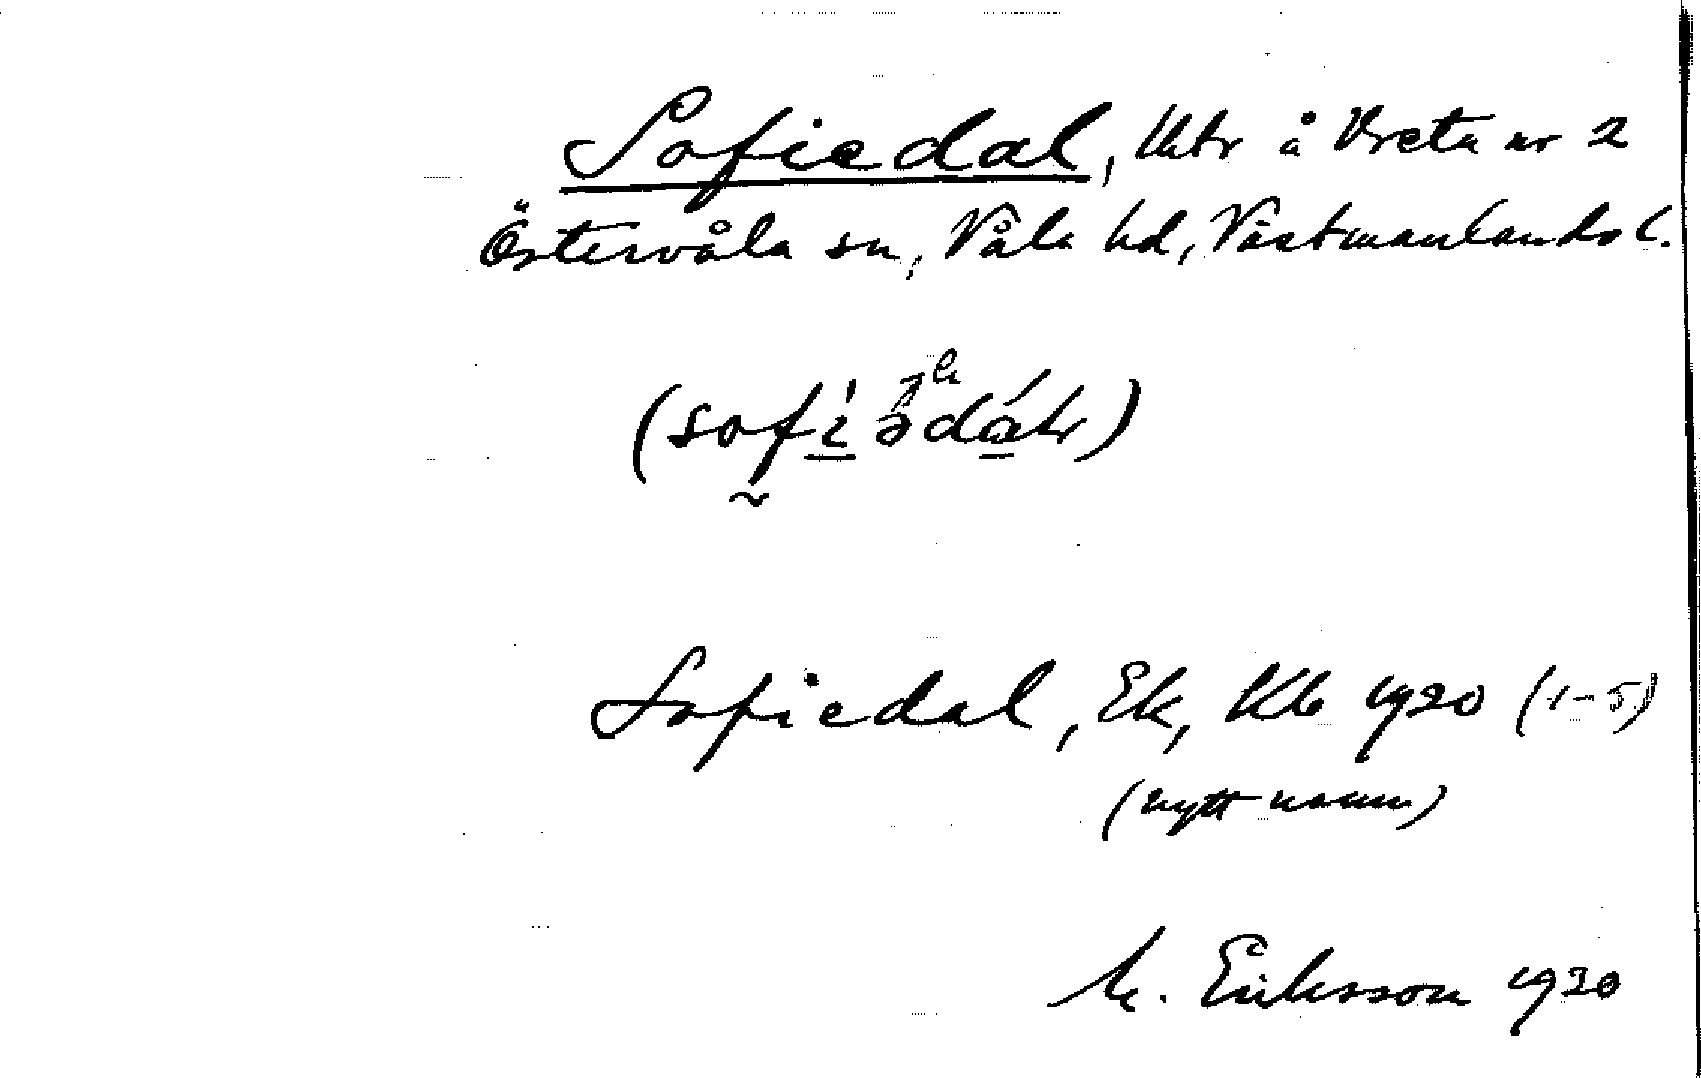 Sofiedal, Utbr å Vreta nr 2
Östervåla sn, Våla hd, Västmanlands l.
Sofiedal, Ek, Kb 1920 (1-5)
(nytt namn)
M. Eriksson 1930